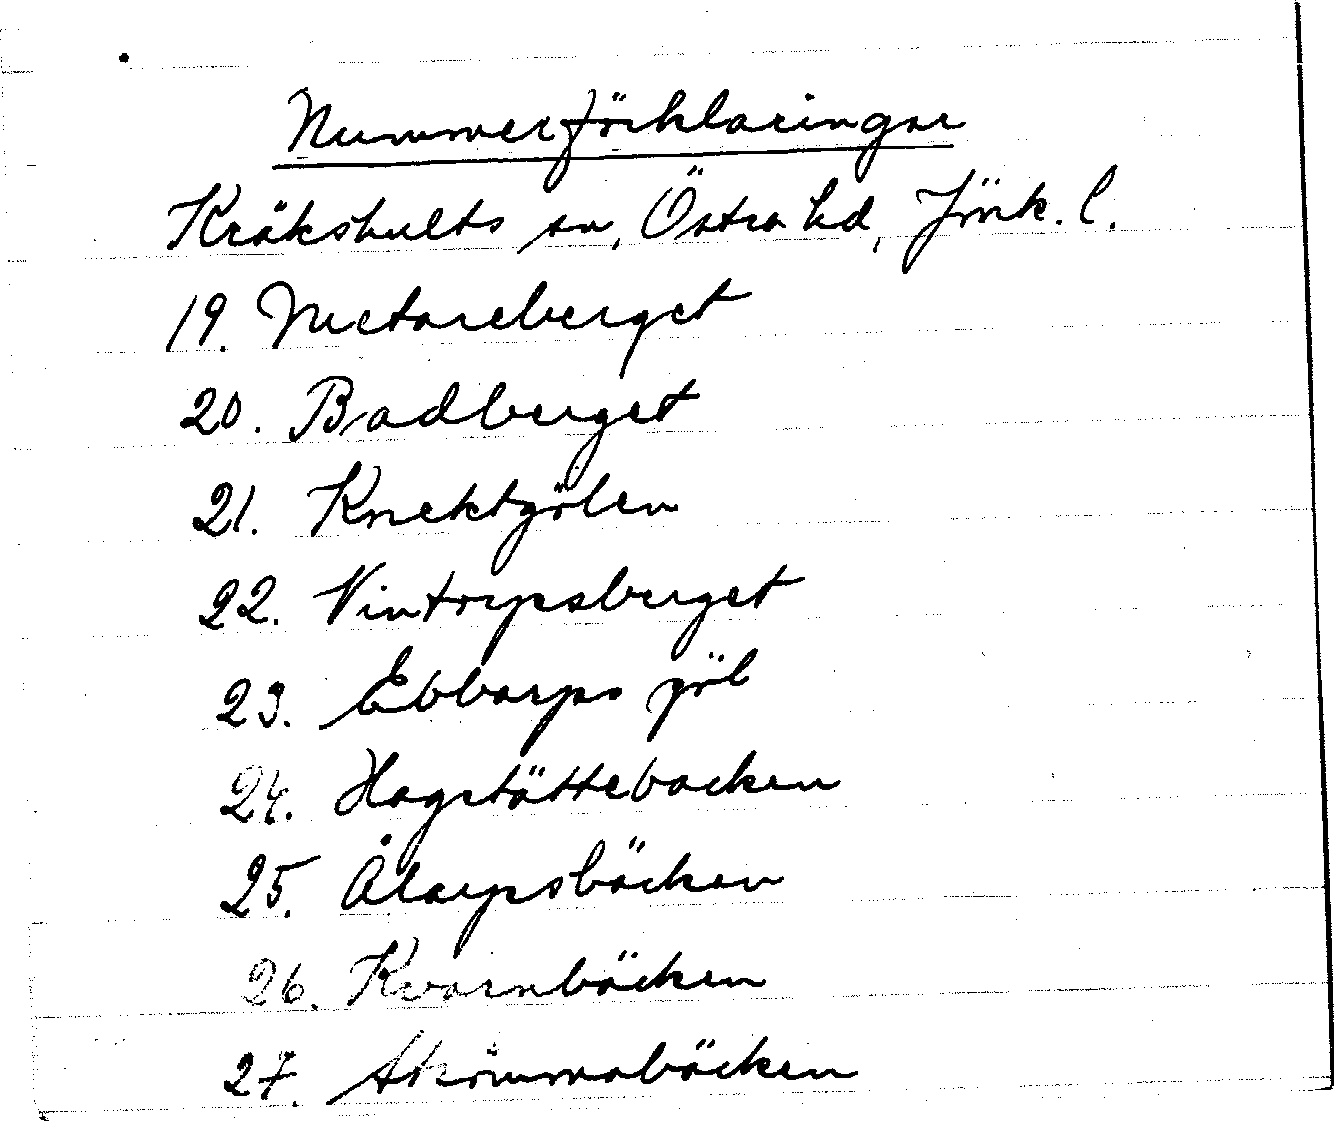 Nummerförklaringar
Kråkshults sn, Östra hd, Jönk. l.
19. Metareberget
20. Badberget
21. Knektgölen
22. Vintorpsberget
23. Ebbarps göl
24. Hagstättebacken
25. Ålarpsbäcken
26. Kvarnbäcken
27. Skrömmabäcken